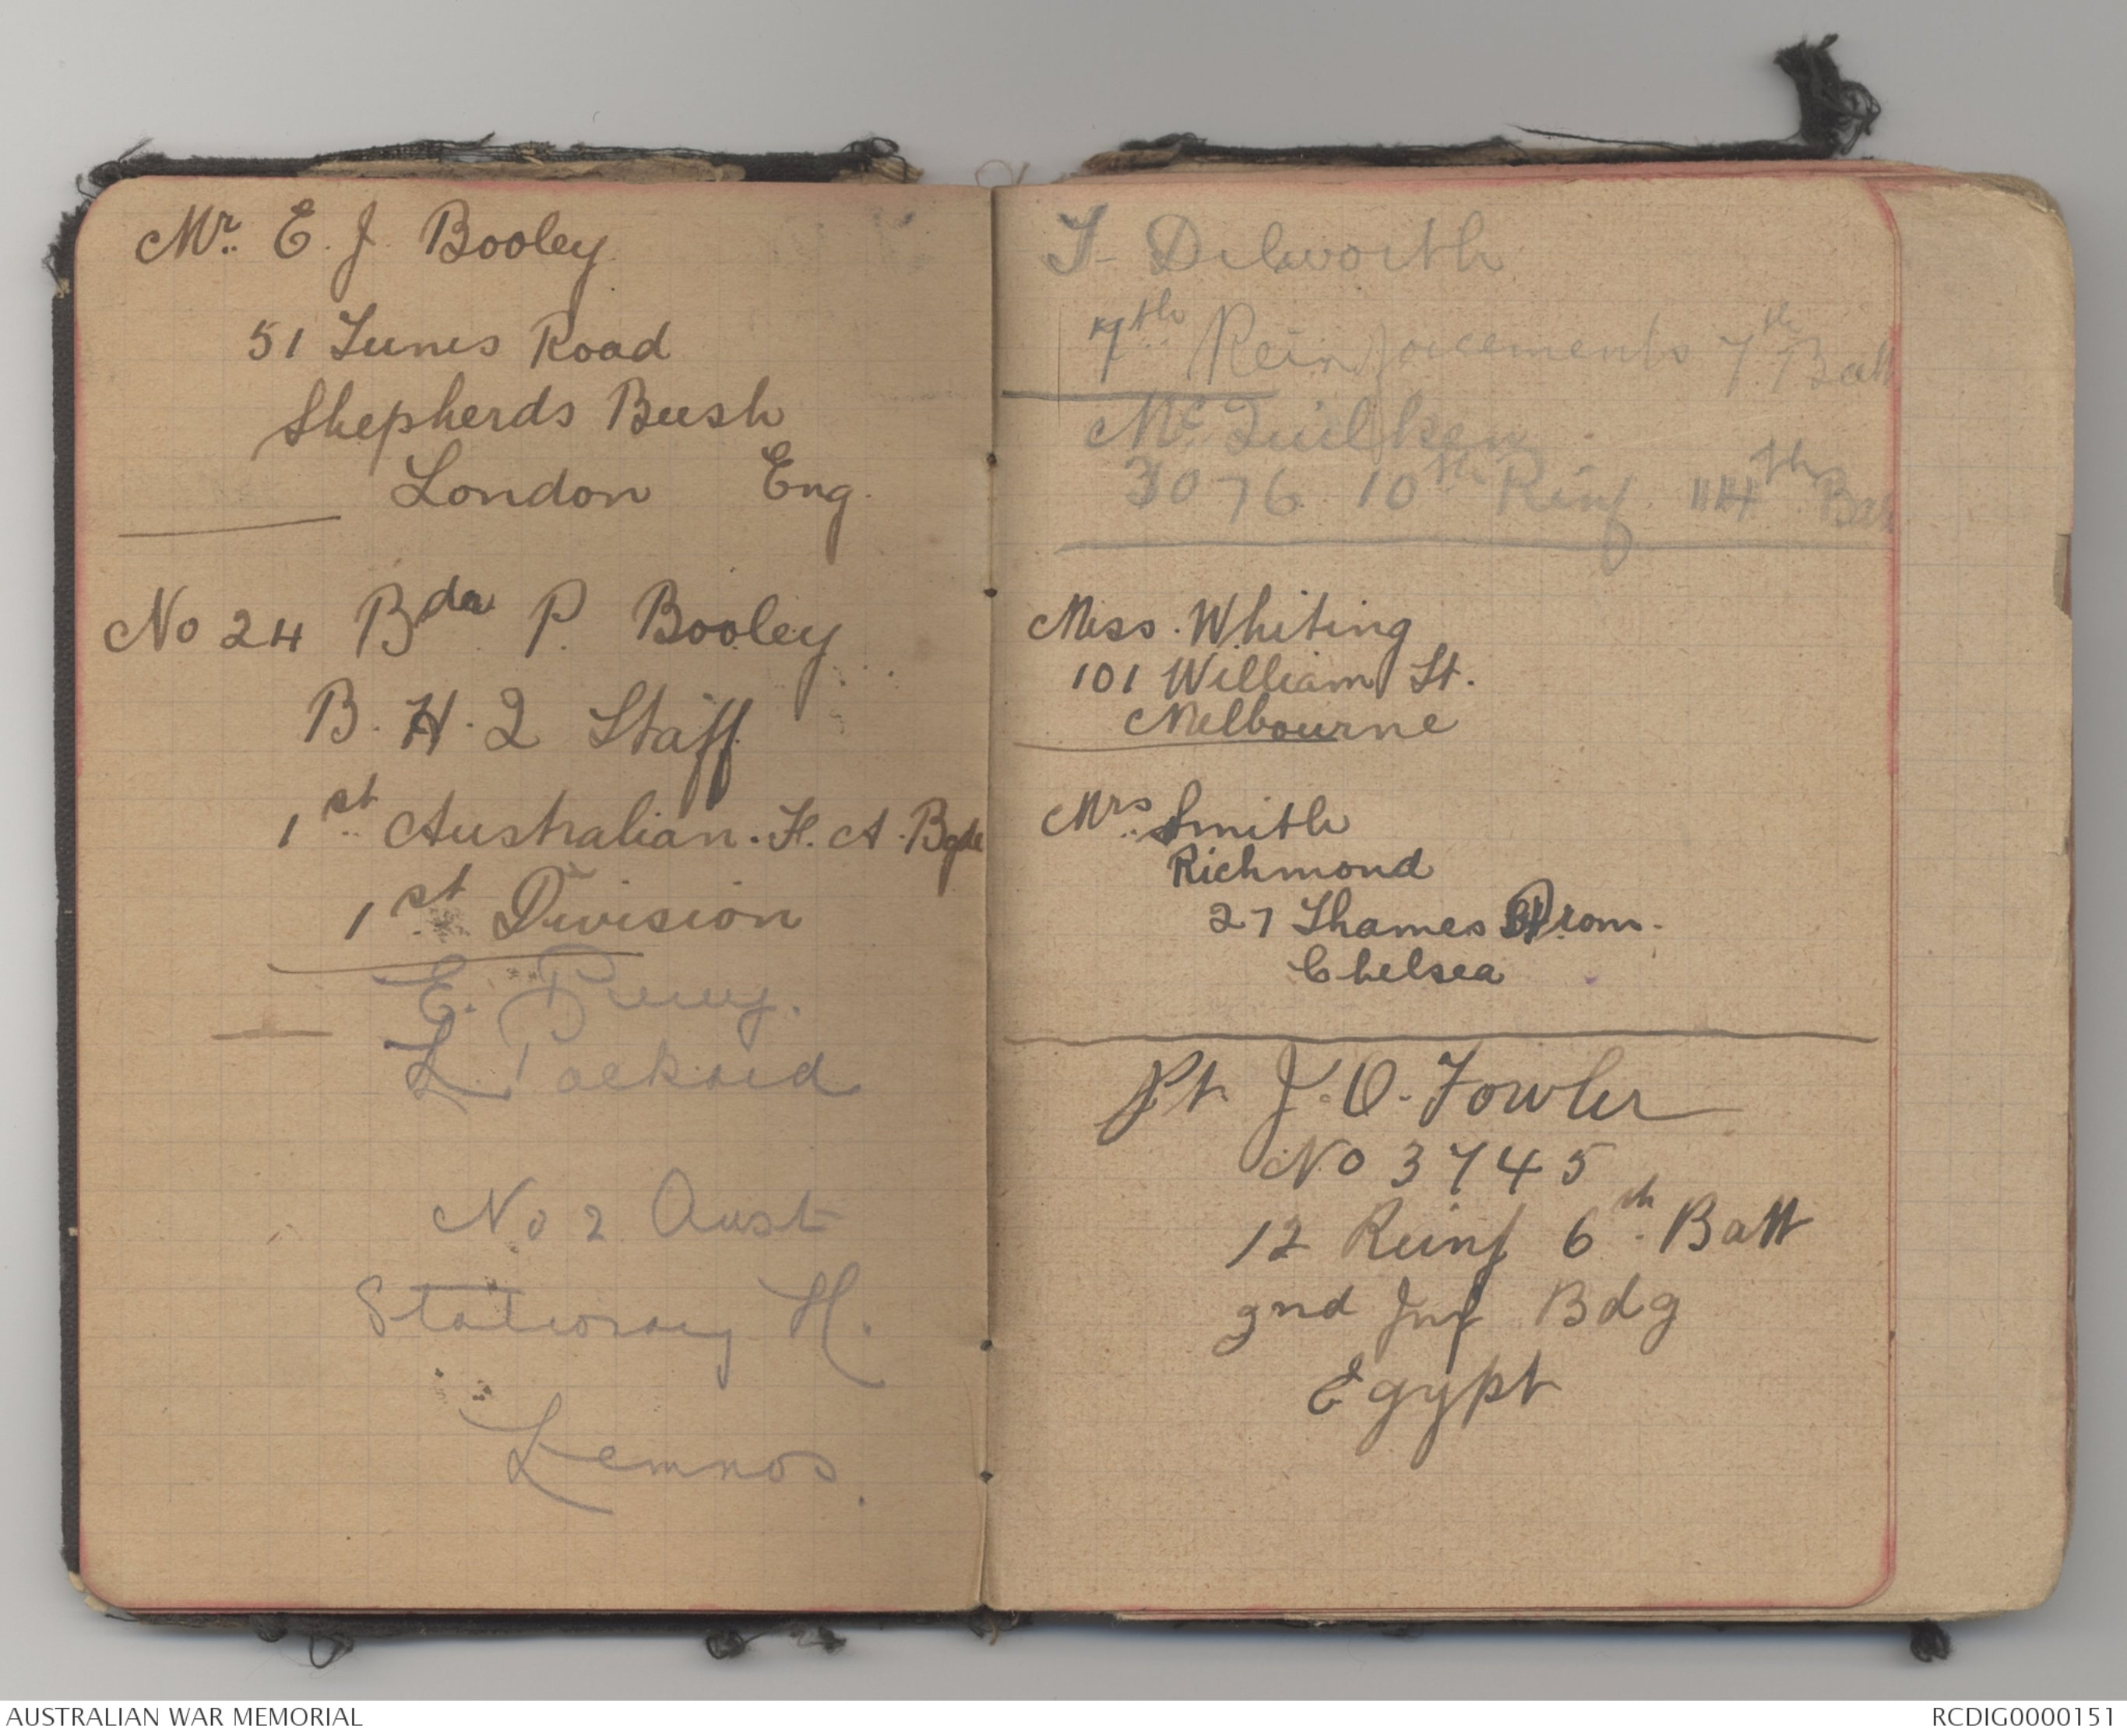 Mr. E. J. Booley
51 Tunis Road
Shepherds Bush
London Eng.
No 24 Bdr P. Booley
B. H. Q Staff
1st Australian. F. A. Bgde
1st Division
E.
L Packard
No 2 Aust
Stationary H.
Lemnos.
T- Dilworth
7th Reinforcements 7th Batt
Mc Quilken
3076 10th Rinf 14th Bat
Miss. Whiting
101 William St.
Melbourne
Mrs. Smith
Richmond
27 Thames Prom.
Chelsea
Pt J. O. Fowler
No 3745
12 Reinf 6th Batt
2nd Inf Bdg
Egypt
AUSTRALIAN WAR MEMORIAL
RCDIG0000151